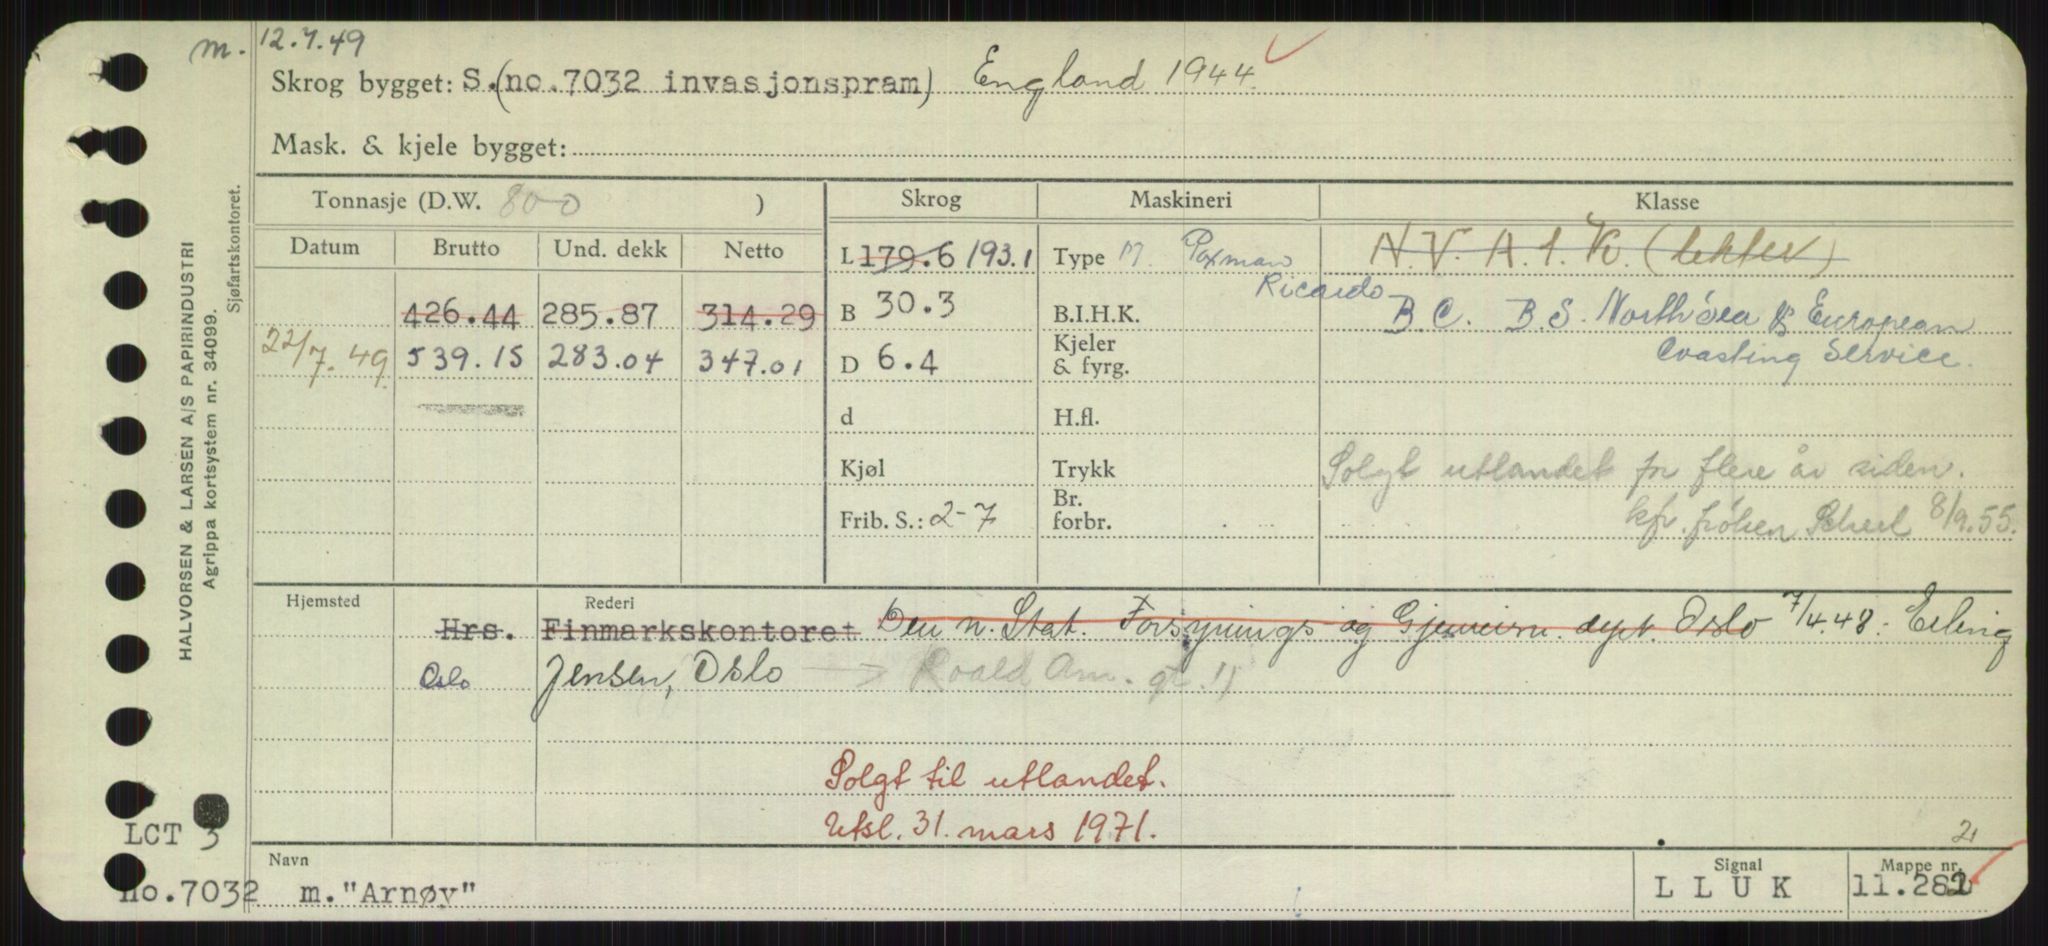 m. 12.7.49
Skrog bygget: S.(no.7032 invasjonspram) England 1944
Mask. & kjele bygget:
Tonnasje (D.W. 800 )
Skrog
Maskineri
Klasse
Datum Brutto Und. dekk Netto
L 179.6 193.1
Type M. Paxman
Ricardo
N.V. A.1.K. (lekter)
426.44 285.87 314.29
B 30.3
B.I.H.K.
B.C. B.S. North Sea & European
Coasting Service.
22/7.49 539.15 283.04 347.01
D 6.4
Kjeler
& fyrg.
d
H.fl.
Kjøl
Trykk
Solgt utlandet for flere år siden.
Frib. S.: 2-7
Br.
forbr.
kfr. frøken 8/9.55.
Hjemsted
Rederi
Hrs. Finmarkskontoret Den n. Stat. Forsynings og Gjenreisn. dept. Oslo 7/4.48. Erling
Oslo Jensen, Oslo → Roald Am. gt. 11
Solgt til utlandet.
Utsl. 31. mars 1971.
LCT 3
no.7032
Navn
m. "Arnøy"
Signal
LLUK
21
Mappe nr.
11.282
HALVORSEN & LARSEN A/S PAPIRINDUSTRI
Agrippa kortsystem nr. 34099.
Sjøfartskontoret.